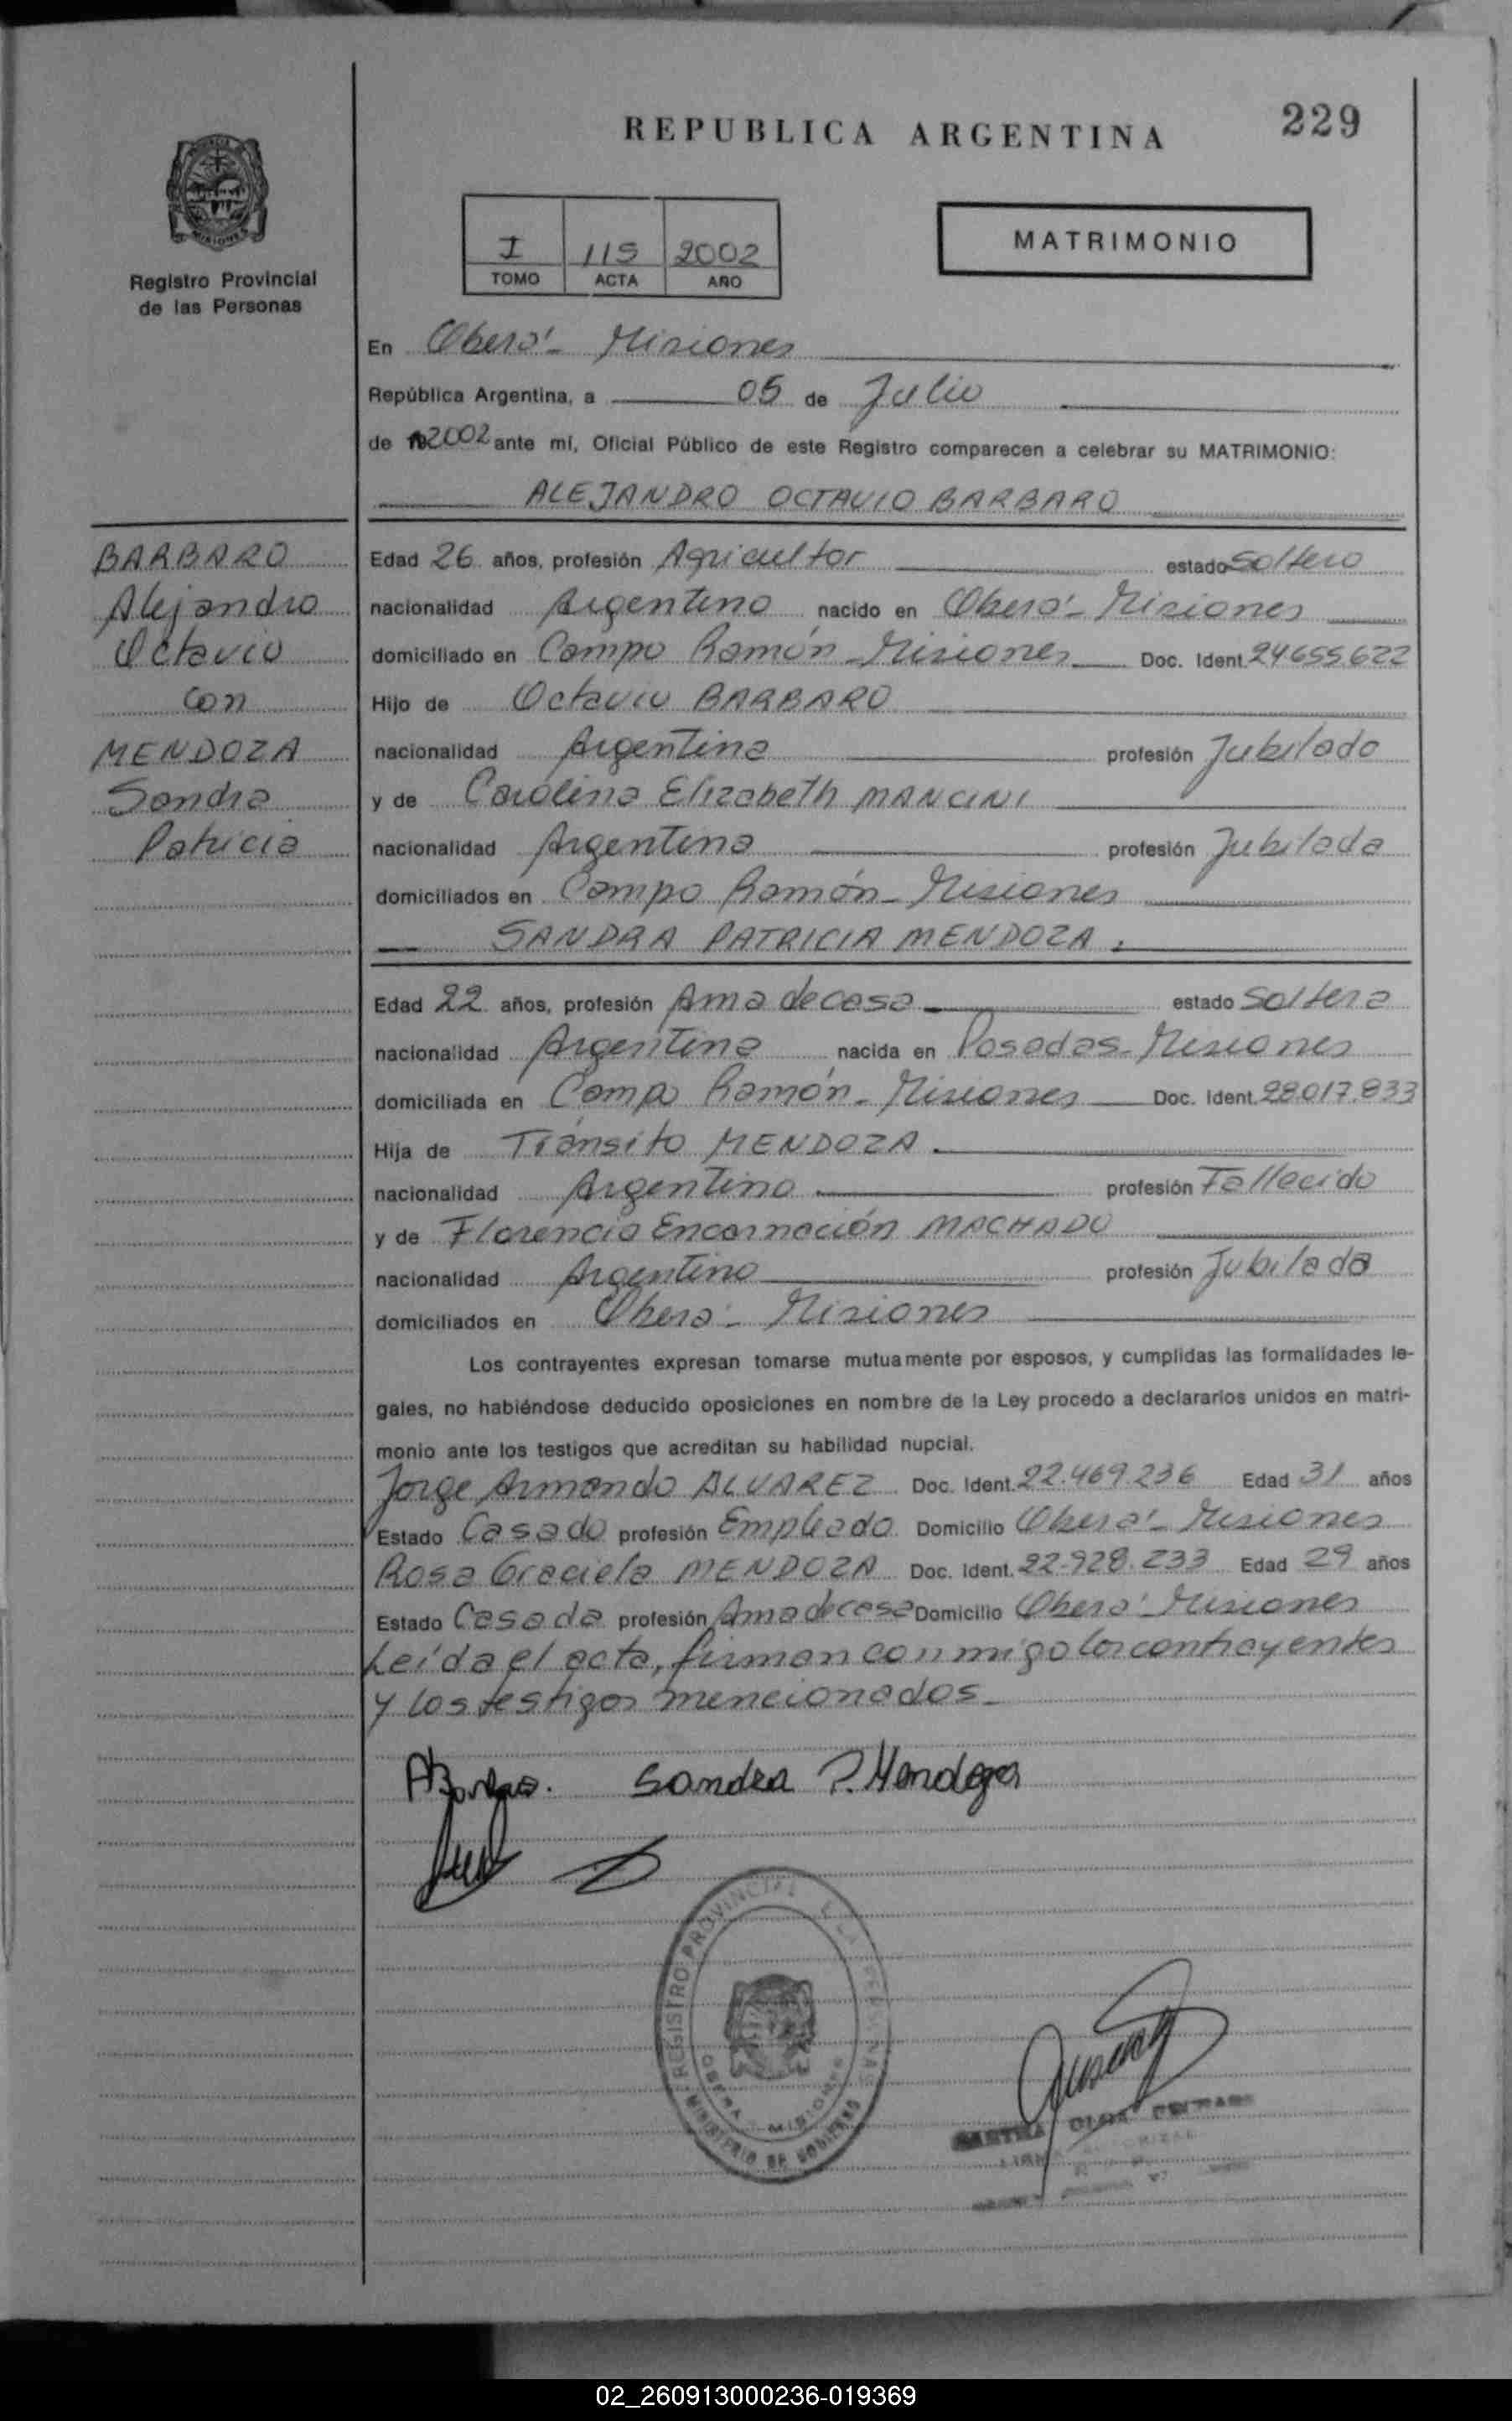 REPUBLICA ARGENTINA
229
Registro Provincial
de las Personas
I 115 2002
TOMO ACTA AÑO
MATRIMONIO
En Oberá - Misiones
República Argentina, a 05 de Julio
de 2002 ante mí, Oficial Público de este Registro comparecen a celebrar su MATRIMONIO:
ALEJANDRO OCTAVIO BARBARO
BARBARO
Alejandro
Octavio
con
MENDOZA
Sandra
Patricia
Edad 26 años, profesión Agricultor estado Soltero
nacionalidad Argentino nacido en Oberá - Misiones
domiciliado en Campo Ramón - Misiones Doc. Ident. 24655622
Hijo de Octavio BARBARO
nacionalidad Argentina profesión Jubilado
y de Carolina Elizabeth MANCINI
nacionalidad Argentina profesión Jubilada
domiciliados en Campo Ramón - Misiones
SANDRA PATRICIA MENDOZA.
Edad 22 años, profesión Ama de casa estado Soltera
nacionalidad Argentina nacida en Posadas - Misiones
domiciliada en Campo Ramón - Misiones Doc. Ident. 28.017.833
Hija de Tránsito MENDOZA
nacionalidad Argentino profesión Fallecido
y de Florencia Encarnación MACHADO
nacionalidad Argentina profesión Jubilada
domiciliados en Oberá - Misiones
Los contrayentes expresan tomarse mutuamente por esposos, y cumplidas las formalidades le-
gales, no habiéndose deducido oposiciones en nombre de la Ley procedo a declararlos unidos en matri-
monio ante los testigos que acreditan su habilidad nupcial.
Jorge Armando ALVAREZ Doc. Ident. 22.469.236 Edad 31 años
Estado Casado profesión Empleado Domicilio Oberá - Misiones
Rosa Graciela MENDOZA Doc. Ident. 22.928.233 Edad 29 años
Estado Casada profesión Ama de casa Domicilio Oberá - Misiones
Leída el acta, firman conmigo los contrayentes
y los testigos mencionados -
Sandra P. Mendoza
REGISTRO PROVINCIAL DE LAS PERSONAS
OBERA - MISIONES
MINISTERIO DE GOBIERNO
OLGA
02_260913000236-019369